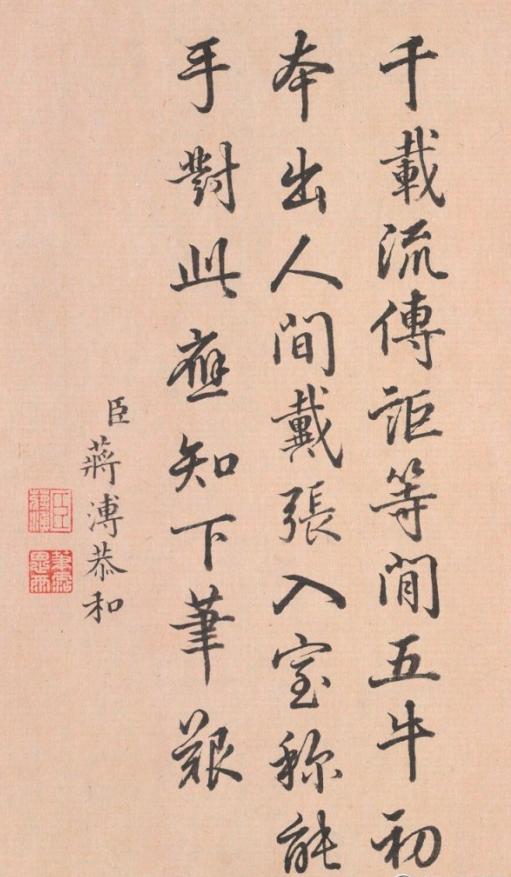 千載流傳詎等閒五牛初
本出人間戴張入室称能
手對此應知下筆艱
臣蔣溥恭和
臣蔣溥